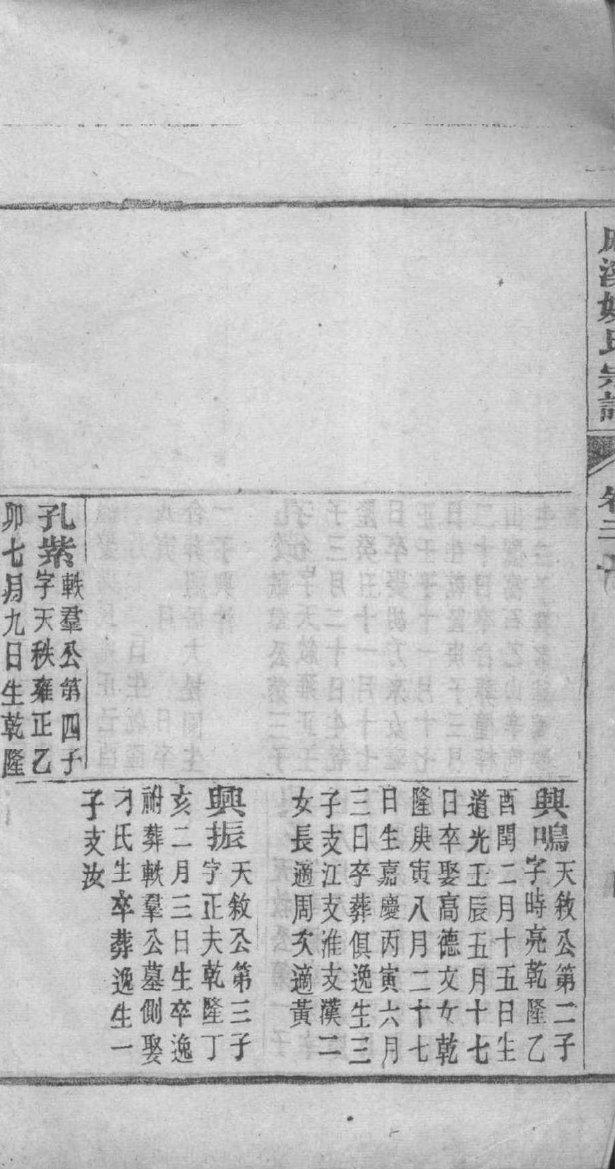 溪姚氏宗譜
卷二
興鳴天敘公第二子
字時亮乾隆乙
酉閏二月十五日生
道光壬辰五月十七
日卒娶高德文女乾
隆庚寅八月二十七
日生嘉慶丙寅六月
三日卒葬俱逸生三
子支江支淮支漢二
女長適周次適黃
興振天敘公第三子
字正夫乾隆丁
亥二月三日生卒逸
祔葬軼羣公墓側娶
刁氏生卒葬逸生一
子支汝
孔紫軼羣公第四子
字天秩雍正乙
卯七月九日生乾隆